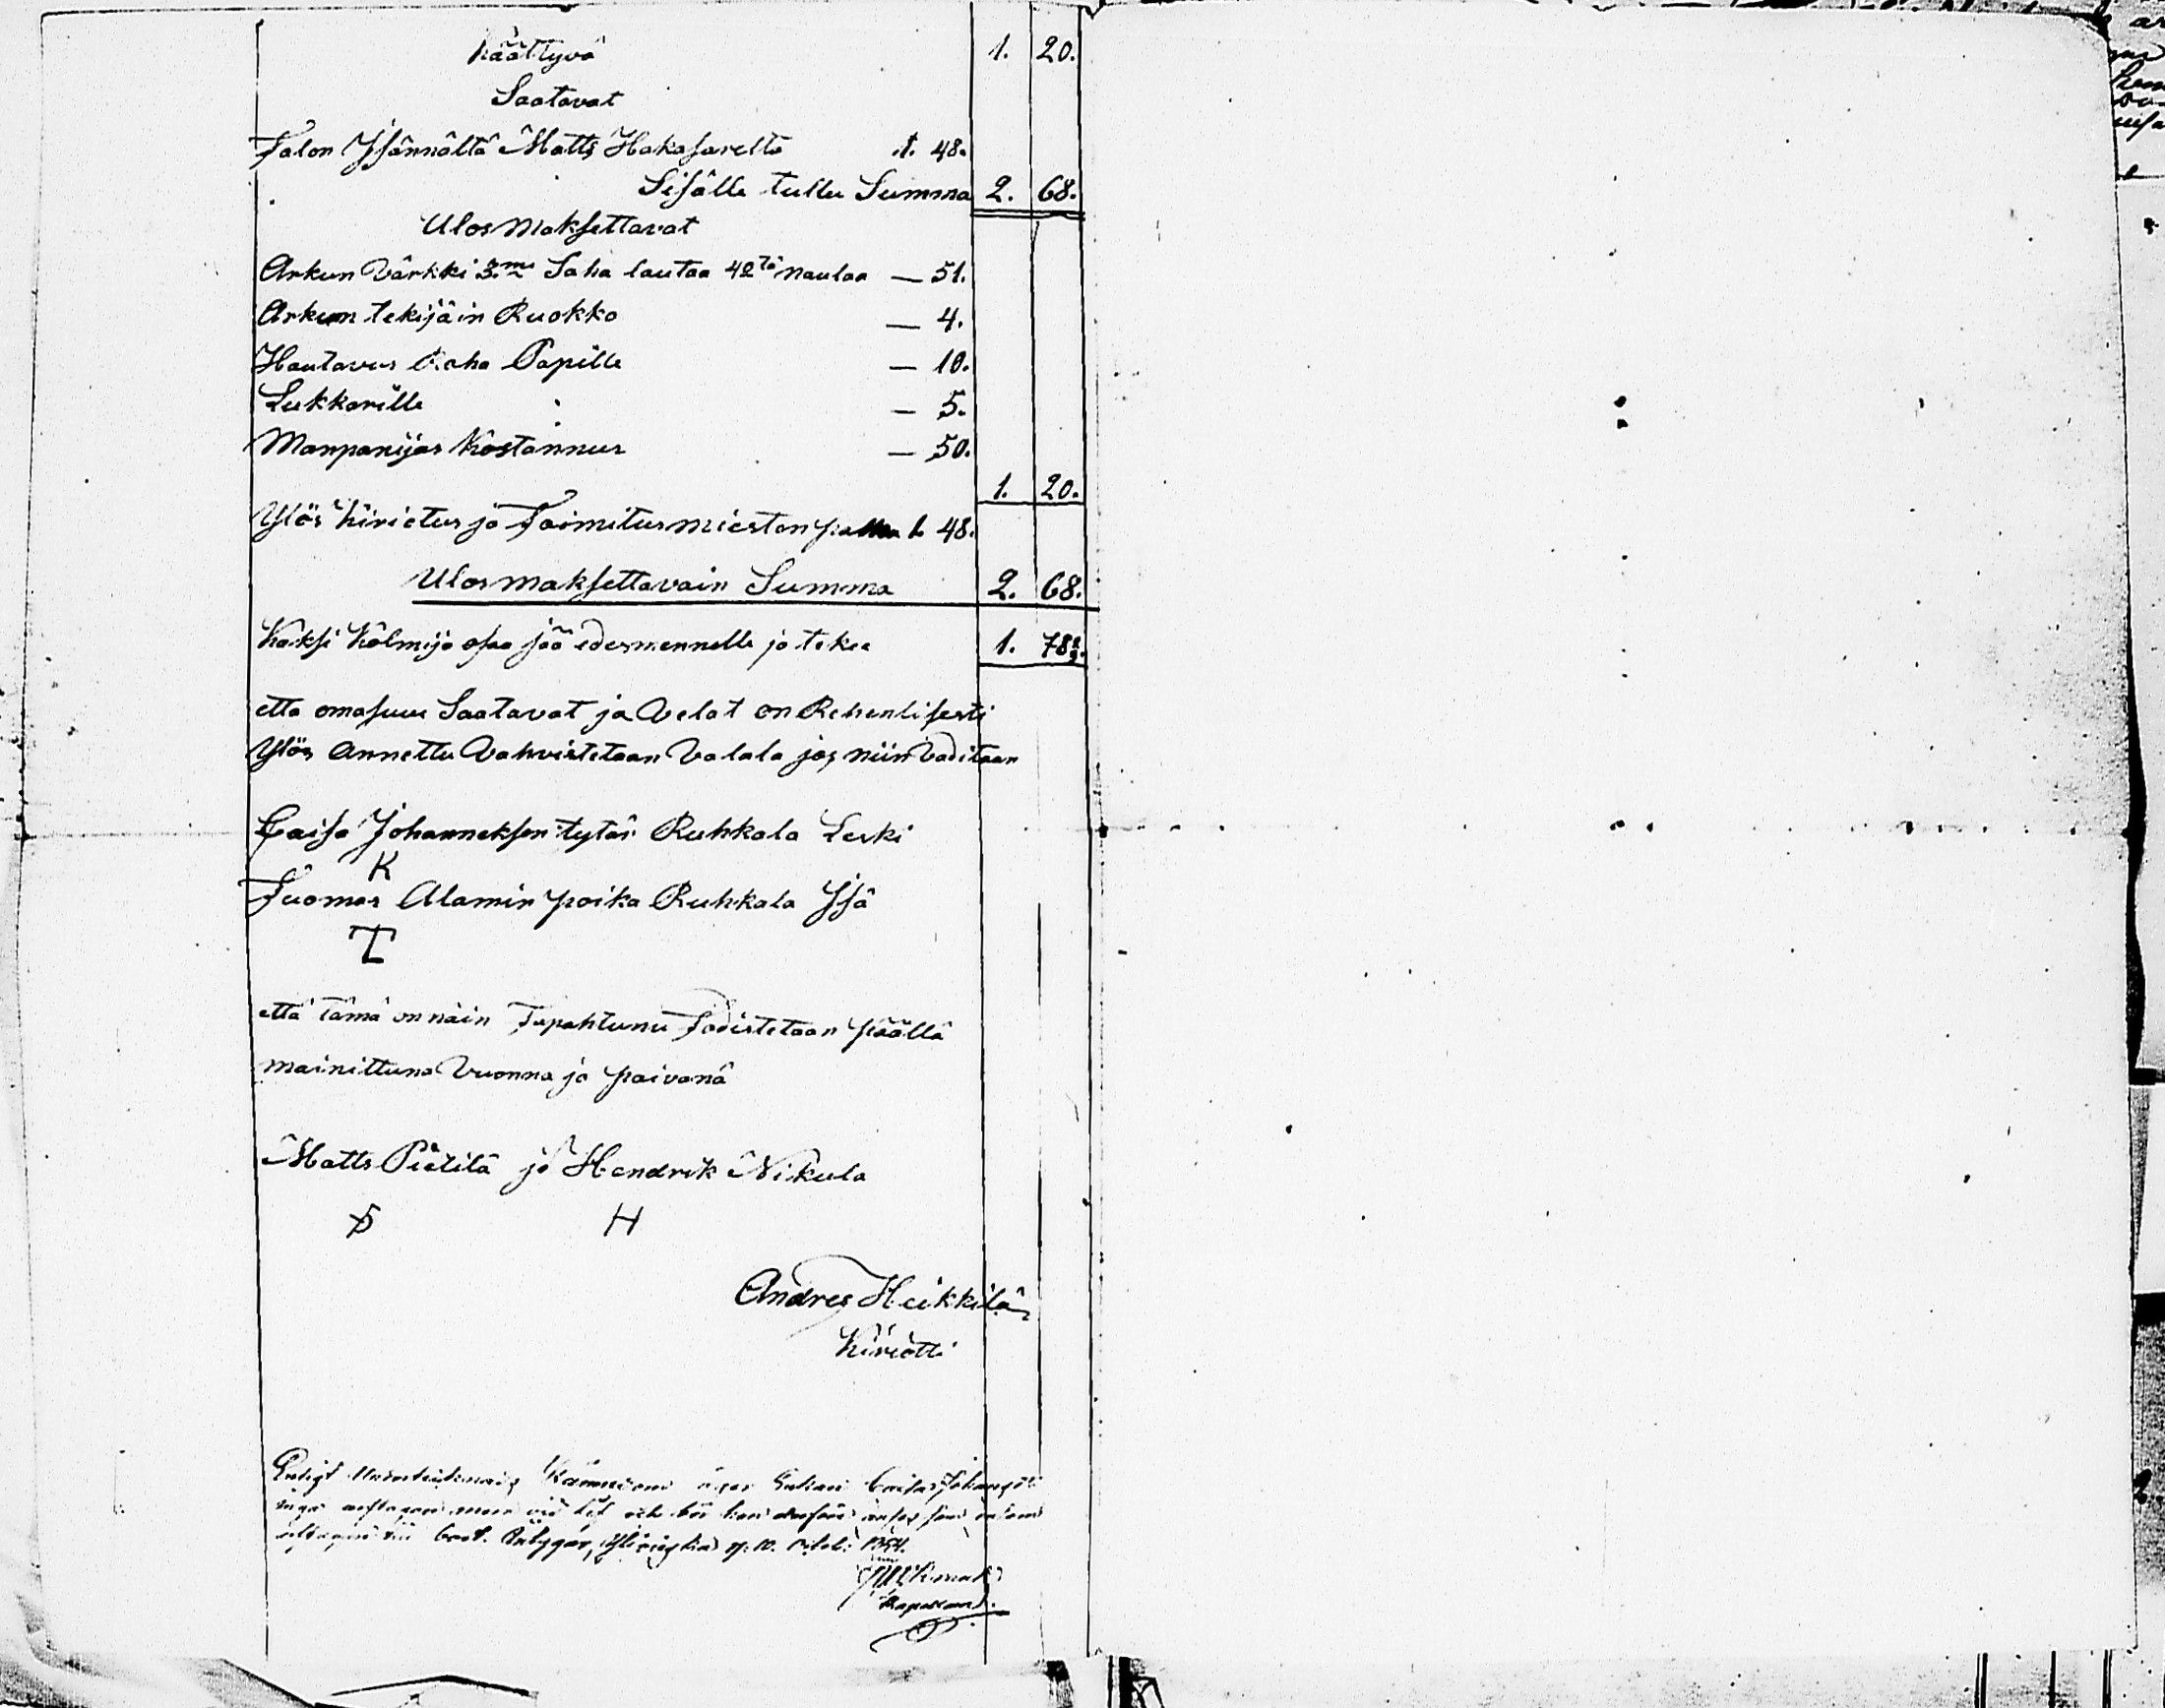 Käättyvä 1. 20.
Saatavat
Talon Isännältä Matts Hakasarelta 1. 48.
Sisälle tullu Summa 2. 68.
Ulos Maksettavat
Arkun Värkki 3.me Saha lautaa 42tä naulaa — 51.
Arkun tekijäin Ruokko — 4.
Hautavus Raha Papille — 10.
Lukkarille — 5.
Manpanijas Kostannus — 50.
1. 20.
Ylös Kirietus ja Toimitus miesten 1. 48.
Ulos maksettavain Summa 2. 68.
Kaksi Kolmijo osaa jää edesmennelle ja tekee 1. 78
etta omasuu Saatavat ja Velat on Rehenlisesti
Ylös Annettu Vahvistetaan Valala jos niin Vaditaan
Caisa Johanneksen tytär Ruhkala Leski
K
Tuomas Alamin poika Ruhkala Isä
T
että tämä on näin Tapahtunu Todistetaan päällä
mainittuna Vuonna ja paivanä
Matts Pietilä ja Hendrik Nikula
H
Andres Heikkilä
Kiriotti
Enligt